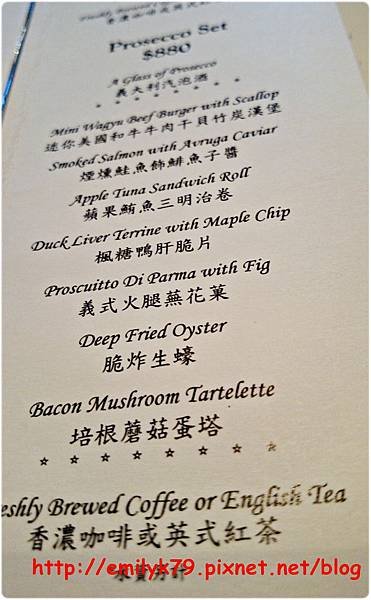 香濃咖啡或英式紅茶
Prosecco Set
$880
A Glass of Prosecco
義大利汽泡酒
☆ ☆ ☆ ☆ ☆ ☆ ☆ ☆
Mini Wagyu Beef Burger with Scallop
迷你美國和牛牛肉干貝竹炭漢堡
Smoked Salmon with Avruga Caviar
煙燻鮭魚飾鯡魚子醬
Apple Tuna Sandwich Roll
蘋果鮪魚三明治卷
Duck Liver Terrine with Maple Chip
楓糖鴨肝脆片
Proscuitto Di Parma with Fig
義式火腿蕪花菓
Deep Fried Oyster
脆炸生蠔
Bacon Mushroom Tartelette
培根蘑菇蛋塔
☆ ☆ ☆ ☆ ☆ ☆ ☆ ☆ ☆
eshly Brewed Coffee or English Tea
香濃咖啡或英式紅茶
http://emilyk79.pixnet.net/blog